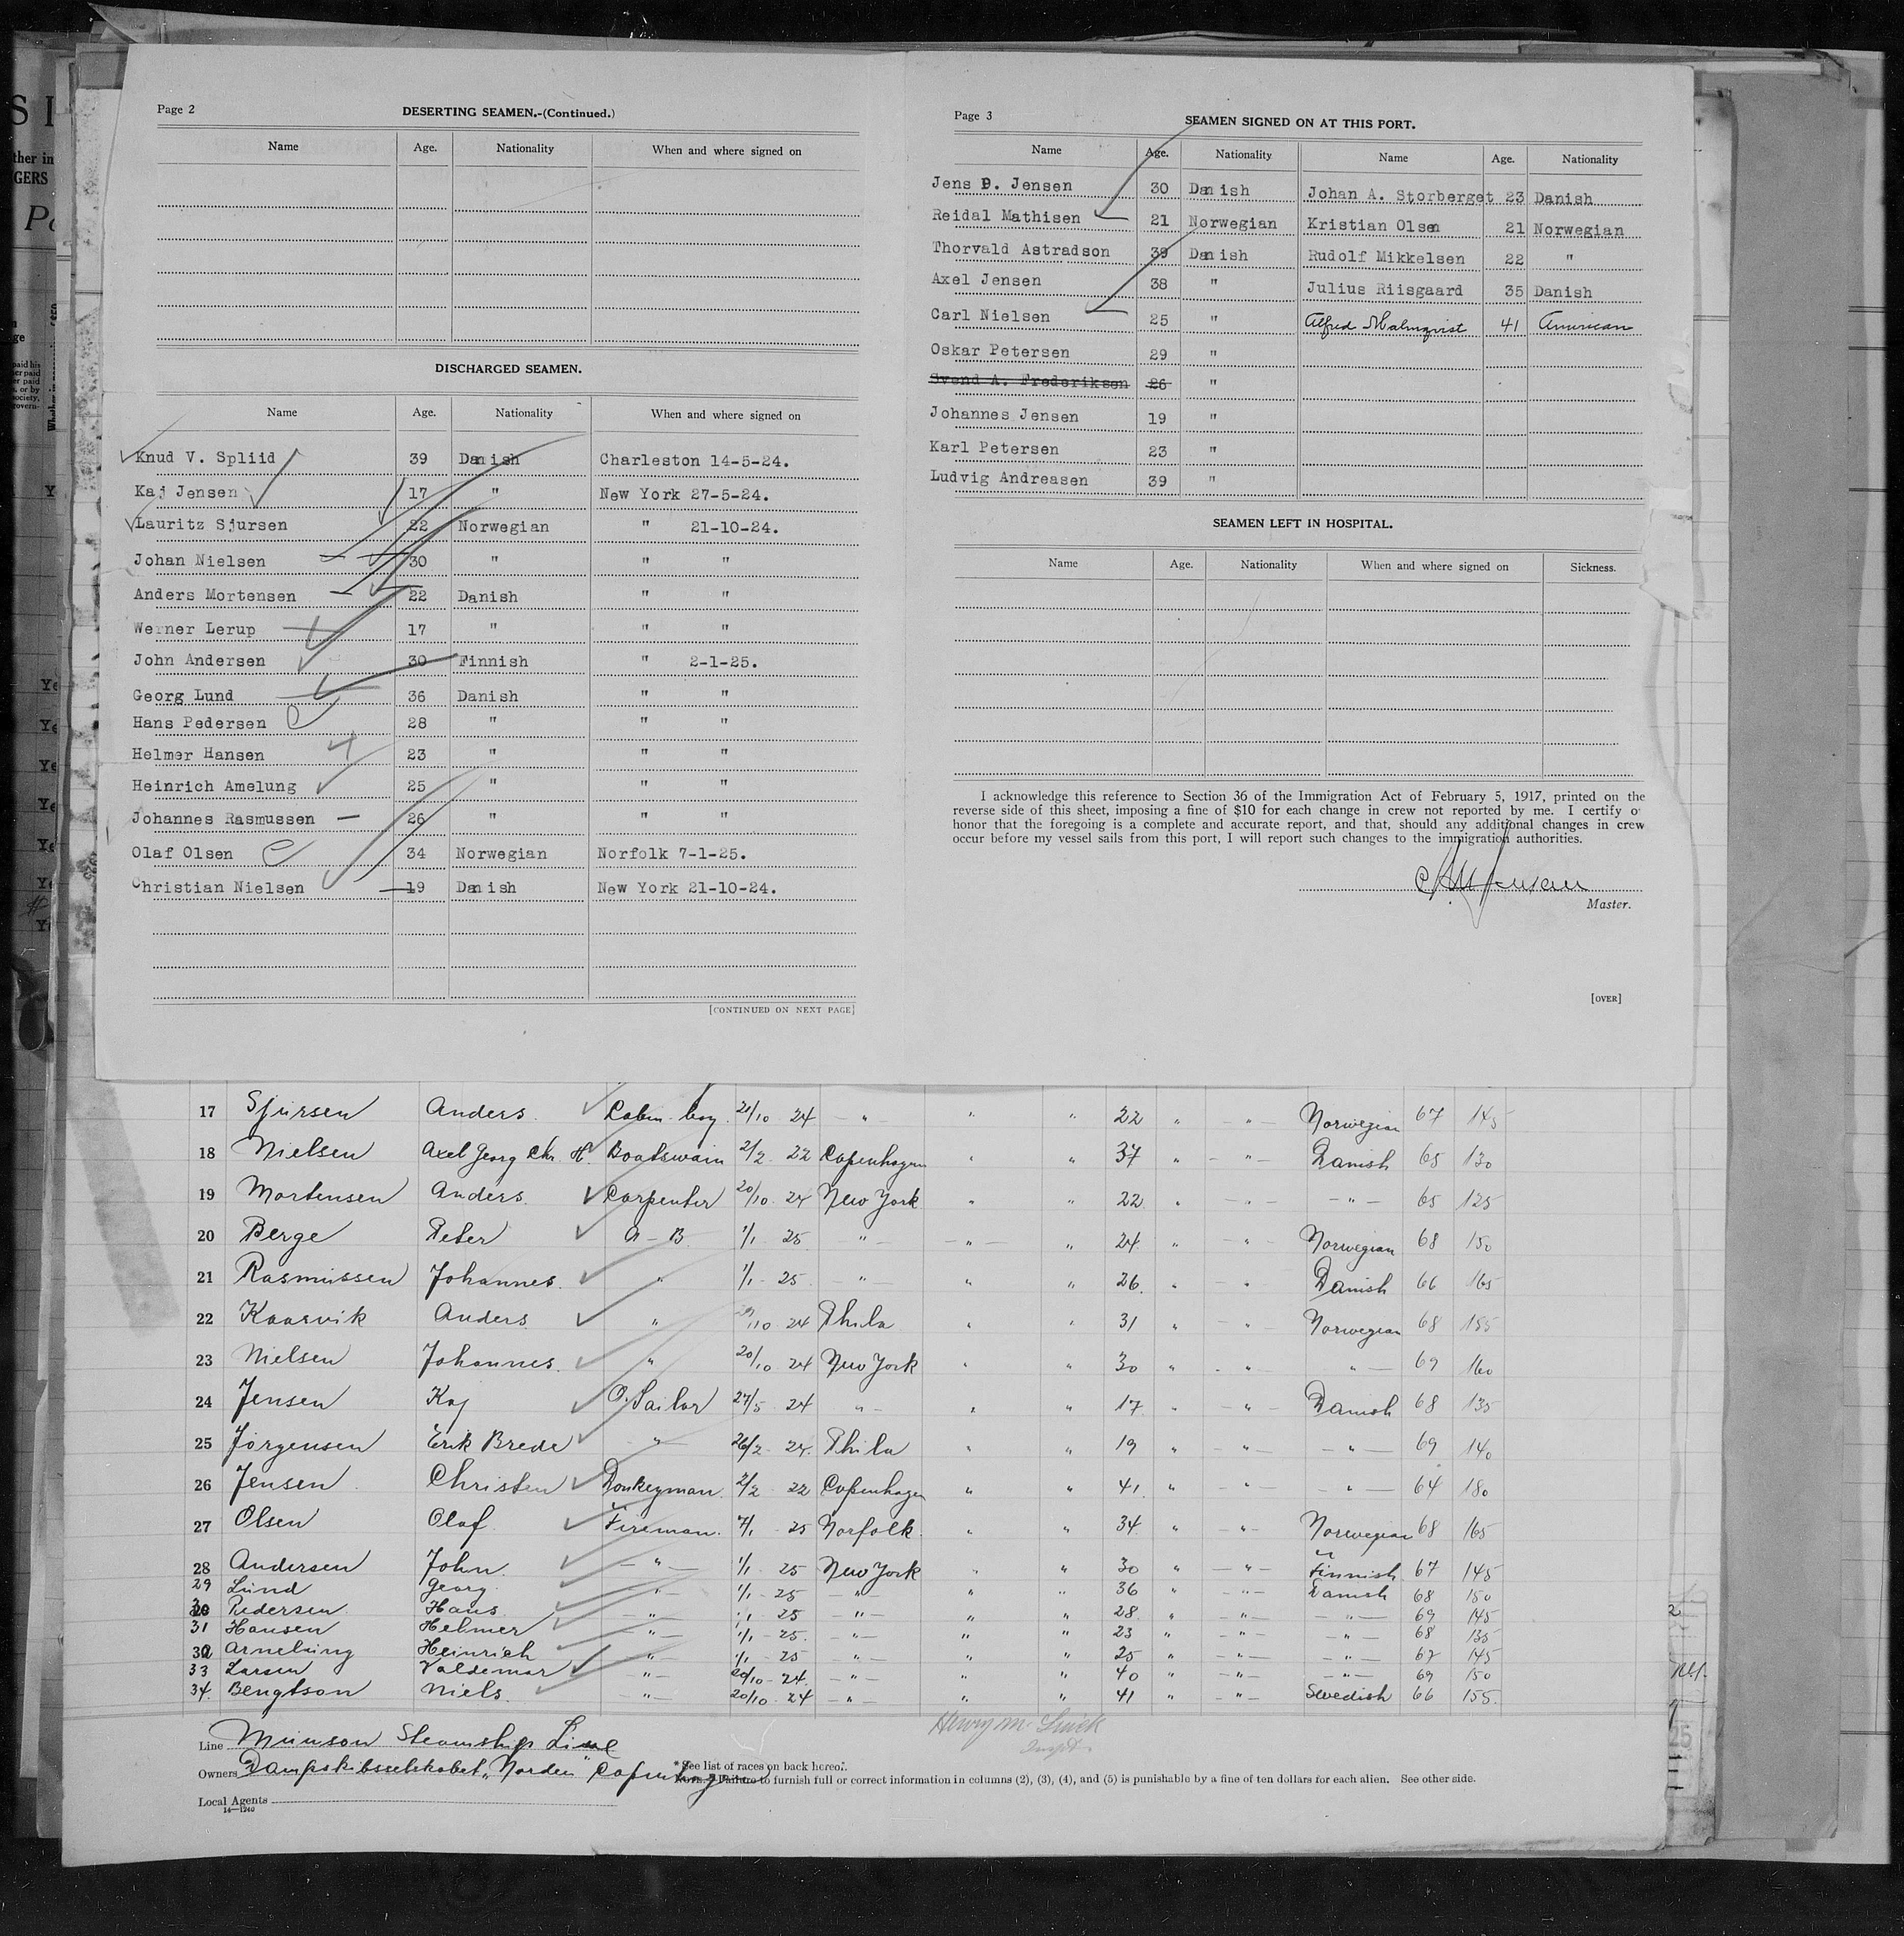 Page 2
DESERTING SEAMEN.-(Continued.)
Name Age. Nationality When and where signed on
DISCHARGED SEAMEN.
Name Age. Nationality When and where signed on
Knud V. Spliid 39 Danish Charleston 14-5-24.
Kaj Jensen 17 " New York 27-5-24.
Lauritz Sjursen 22 Norwegian " 21-10-24.
Johan Nielsen 30 " " "
Anders Mortensen 22 Danish " "
Werner Lerup 17 " " "
John Andersen 30 Finnish " 2-1-25.
Georg Lund 36 Danish " "
Hans Pedersen 28 " " "
Helmer Hansen 23 " " "
Heinrich Amelung 25 " " "
Johannes Rasmussen 26 " " "
Olaf Olsen 34 Norwegian Norfolk 7-1-25.
Christian Nielsen 19 Danish New York 21-10-24.
[CONTINUED ON NEXT PAGE]
Page 3
SEAMEN SIGNED ON AT THIS PORT.
Name Age. Nationality Name Age. Nationality
Jens P. Jensen 30 Danish Johan A. Storberget 23 Danish
Reidal Mathisen 21 Norwegian Kristian Olsen 21 Norwegian
Thorvald Astradson 39 Danish Rudolf Mikkelsen 22 "
Axel Jensen 38 " Julius Riisgaard 35 Danish
Carl Nielsen 25 " Alfred Malmqvist 41 American
Oskar Petersen 29 "
Svend A. Frederiksen 26 "
Johannes Jensen 19 "
Karl Petersen 23 "
Ludvig Andreasen 39 "
SEAMEN LEFT IN HOSPITAL.
Name Age. Nationality When and where signed on Sickness.
I acknowledge this reference to Section 36 of the Immigration Act of February 5, 1917, printed on the
reverse side of this sheet, imposing a fine of $10 for each change in crew not reported by me. I certify o
honor that the foregoing is a complete and accurate report, and that, should any additional changes in crew
occur before my vessel sails from this port, I will report such changes to the immigration authorities.
Master.
[OVER]
17 Sjursen Anders. Cabin boy 21/10 24 - " - " " 22 " - " - Norwegian 67 145
18 Nielsen Axel Georg Chr. H. Boatswain 2/2 22 Copenhagen " " 37 " - " - Danish 65 130
19 Mortensen Anders. Carpenter 20/10 24 New York " " 22 " - " - - " - 65 125
20 Berge Peter A-B 1/1 25 - " - - " - " 24 " - " - Norwegian 68 150
21 Rasmussen Johannes. " 1/1 - 25 - " - " " 26. " " Danish 66 165
22 Kaarvik Anders " /10 24 Phila " " 31 " - " Norwegian 68 155
23 Nielsen Johannes. " 20/10 24 New York " " 30 " - " " - 69 160
24 Jensen Kaj O. Sailor 27/5 24 " - " " 17 " - " - Danish 68 135
25 Jorgensen Erik Brede - " - 26/2 - 24. Phila " " 19 " - " - - " - 69 140
26 Jensen Christen Donkeyman. 2/2 - 22 Copenhagen " " 41. " - " - - " - 64 180
27 Olsen Olaf Fireman. 7/1 - 25 Norfolk. " " 34 " - " - Norwegian 68 165
28 Andersen John. - " - 1/1 - 25 New York " " 30 " - " - Finnish 67 145
29 Lund Georg. " - 1/1 - 25 - " - " " 36 " - " - Danish 68 150
30 Pedersen Hans. - " - 1/1 25 - " - " " 28. " - " - - " - 69 145
31 Hansen Helmer - " - 1/1 - 25. - " - " " 23 " - " - - " - 68 135
32 Amelung Heinrich " - 1/1 - 25 - " - " " 25 " - " - - " - 67 145
33 Larsen Valdemar " - 20/10 - 24. - " - " " 40 " - " - - " - 69 150
34. Bengtson Niels. - " - 20/10 - 24 - " - " " 41 " - " - Swedish 66 155.
Line Munson Steamship Line
Owners Dampskibsselskabet "Norden" Copenhagen
Local Agents
14—1240
* See list of races on back hereof.
Failure to furnish full or correct information in columns (2), (3), (4), and (5) is punishable by a fine of ten dollars for each alien. See other side.